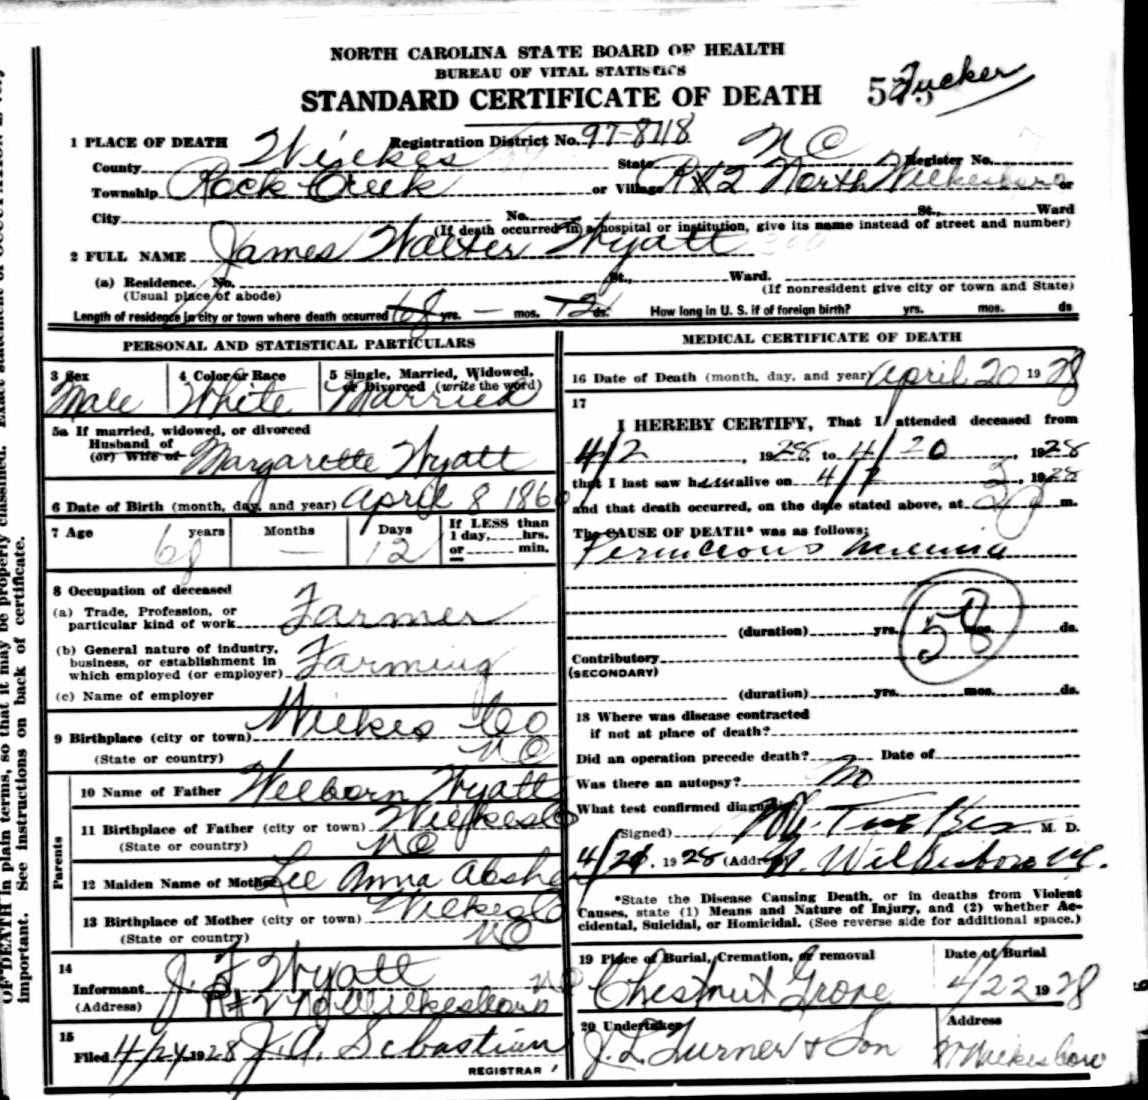 NORTH CAROLINA STATE BOARD OF HEALTH
BUREAU OF VITAL STATISTICS
STANDARD CERTIFICATE OF DEATH
Tucker
1 PLACE OF DEATH Registration District No. 97-8718
County Wilkes State N C Register No.
Township Rock Creek or Village R#2 North Wilkesboro or
City No. St., Ward
(If death occurred in a hospital or institution, give its name instead of street and number)
2 FULL NAME James Walter Wyatt
(a) Residence. No. St., Ward.
(Usual place of abode) (If nonresident give city or town and State)
Length of residence in city or town where death occurred 68 yrs. — mos. 12 ds. How long in U. S. if of foreign birth? yrs. mos. ds
PERSONAL AND STATISTICAL PARTICULARS
3 Sex 4 Color or Race 5 Single, Married, Widowed, or Divorced (write the word)
Male White Married
5a If married, widowed, or divorced
Husband of
(or) Wife of Margarette Wyatt
6 Date of Birth (month, day, and year) April 8 1860
7 Age years Months Days If LESS than 1 day, hrs. or min.
68 — 12
8 Occupation of deceased
(a) Trade, Profession, or
particular kind of work Farmer
(b) General nature of industry,
business, or establishment in
which employed (or employer) Farming
(c) Name of employer
9 Birthplace (city or town) Wilkes Co
(State or country) N C
Parents
10 Name of Father Welborn Wyatt
11 Birthplace of Father (city or town) Wilkes Co
(State or country) N C
12 Maiden Name of Mother Lee Anna Absher
13 Birthplace of Mother (city or town) Wilkes Co
(State or country) N C
14
Informant J. F Wyatt
(Address) R#2 No Wilkesboro N C
15
Filed 4/24, 1928 J. A. Sebastian
REGISTRAR
MEDICAL CERTIFICATE OF DEATH
16 Date of Death (month, day, and year) April 20 1928
17
I HEREBY CERTIFY, That I attended deceased from
4/2, 1928, to 4/20, 1928
that I last saw him alive on 4/ , 1928
and that death occurred, on the date stated above, at m.
The CAUSE OF DEATH* was as follows:
Pernicious Anemia
58
(duration) yrs. mos. ds.
Contributory
(SECONDARY)
(duration) yrs. mos. ds.
18 Where was disease contracted
if not at place of death?
Did an operation precede death? Date of
Was there an autopsy? no
What test confirmed diagnosis?
(Signed) M. D.
4/ , 1928 (Address) N. Wilkesboro N.C.
*State the Disease Causing Death, or in deaths from Violent
Causes, state (1) Means and Nature of Injury, and (2) whether Ac-
cidental, Suicidal, or Homicidal. (See reverse side for additional space.)
19 Place of Burial, Cremation, or removal Date of Burial
Chestnut Grove 4/22 1928
20 Undertaker Address
J. L. Turner & Son N Wilkesboro
OF DEATH in plain terms, so that it may be properly classified.
important. See instructions on back of certificate.